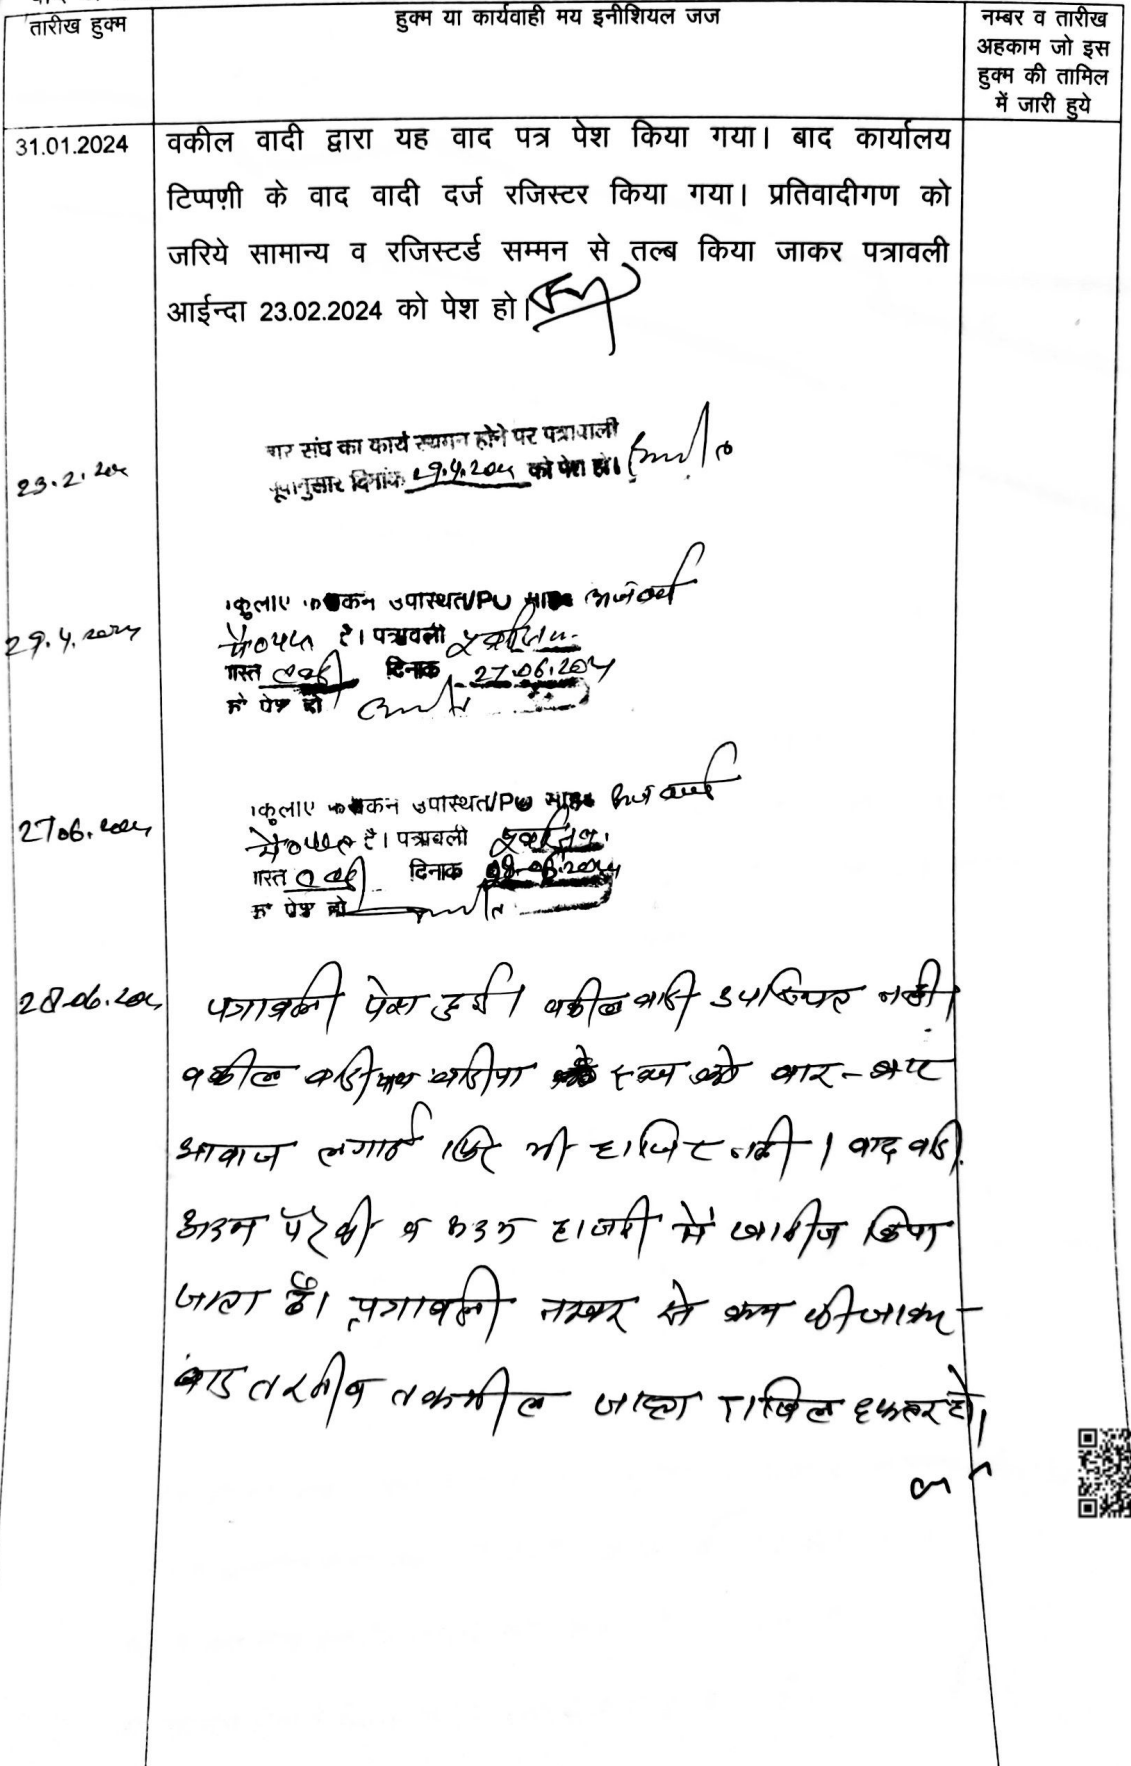 तारीख हुक्म
हुक्म या कार्यवाही मय इनीशियल जज
नम्बर व तारीख
अहकाम जो इस
हुक्म की तामिल
में जारी हुये
31.01.2024
वकील वादी द्वारा यह वाद पत्र पेश किया गया। बाद कार्यालय
टिप्पणी के वाद वादी दर्ज रजिस्टर किया गया। प्रतिवादीगण को
जरिये सामान्य व रजिस्टर्ड सम्मन से तल्ब किया जाकर पत्रावली
आईन्दा 23.02.2024 को पेश हो।
23.2.202
संघ का कार्य स्थगन होने पर पत्रावाली
दिनांक 29.4.202 को पेश हो।
29.4.2024
उपास्थत/PO
है। पत्रावली
दिनाक 27.06.2024
पेश हो
27.06.2024
उपास्थत/PO
है। पत्रावली
दिनाक 28.06.2024
पेश हो
28.06.202
पत्रावली पेश हुई। वकील वादी उपस्थित नहीं।
वकील वादी को बार-बार
आवाज लगाई फिर भी हाजिर नहीं। वाद वादी
अदम पैरवी व अदम हाजरी में खारीज किया
जाता है। पत्रावली नम्बर से कम की जाकर
बाद तकमील दाखिल दफ्तर हो।